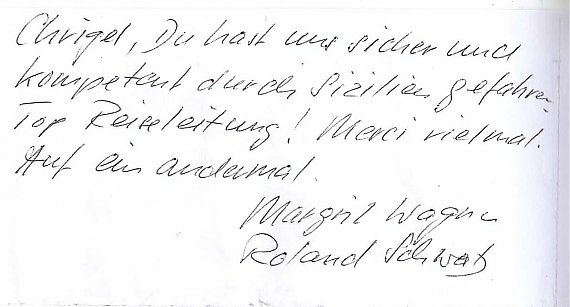 Chrigel, Du hast uns sicher und
kompetent durch Sizilien gefahren.
Top Reiseleitung! Merci vielmal.
Auf ein andermal.
Margrit Wagner
Roland Schwatz